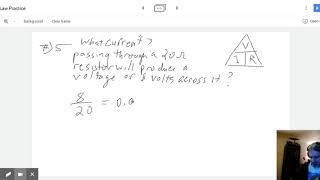 Law Practice
#5 What current
passing through a 20Ω
resistor will produce a
voltage of 8 volts across it?
V
I R
8/20 = 0.0